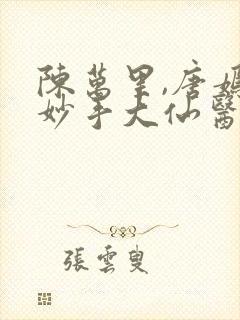 陳萬里,唐媽
妙手大仙醫
張雲叟